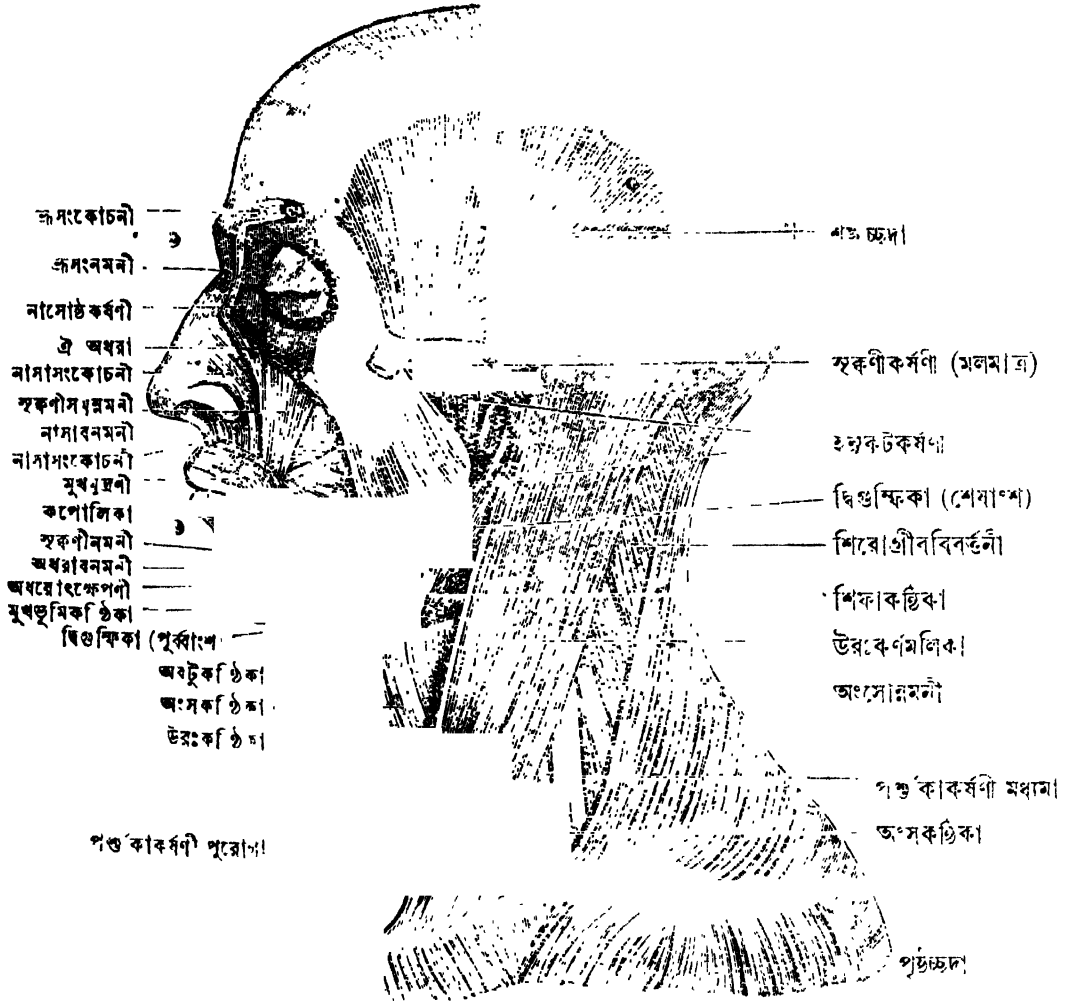 ভ্রূসংকোচনী
ভ্রূসংনমনী
নাসোষ্ঠকর্ষণী
ঐ অধরা
নাসাসংকোচনী
সৃক্কণীসমুন্নমনী
নাসাবনমনী
নাসাসংকোচনী
মুখমুদ্রণী
কপোলিকা
সৃক্কণীনমনী
অধরাবনমনী
অধরোৎক্ষেপণী
মুখভূমিকণ্ঠিকা
দ্বিগুম্ফিকা (পূর্ব্বাংশ
অবটুকণ্ঠিকা
অংসকণ্ঠিকা
উরঃকণ্ঠিকা
পর্শুকাকর্ষণী পুরোগা
শঙ্খচ্ছদা
সৃক্কণীকর্ষণী (মলমাত্র)
দ্বিগুম্ফিকা (শেষাংশ)
শিরোগ্রীববিবর্ত্তনী
শিফাকণ্ঠিকা
উরঃকর্ণমূলিকা
অংসোন্নমনী
পর্শুকাকর্ষণী মধ্যমা
অংসকণ্ঠিকা
পৃষ্ঠচ্ছদা